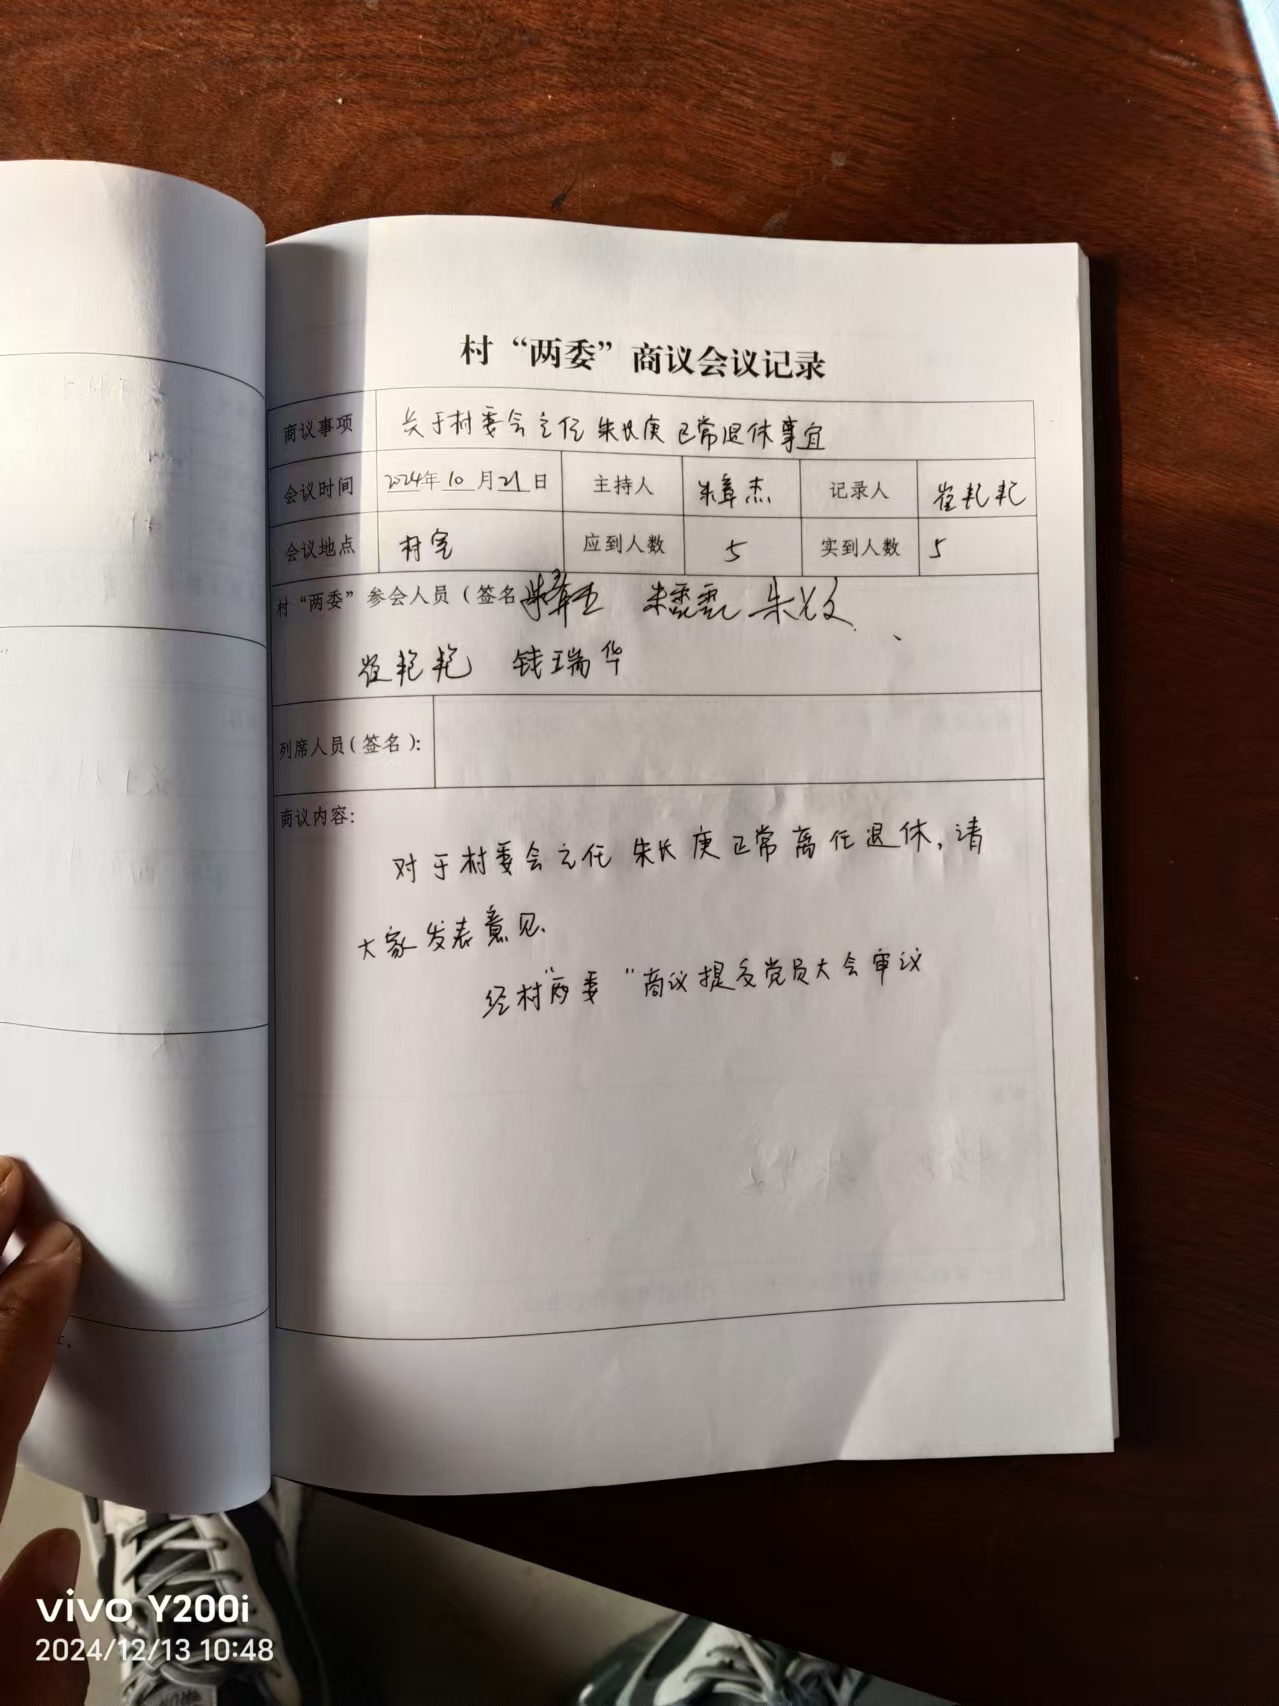 村“两委”商议会议记录
商议事项 关于村委会主任朱长庚正常退休事宜
会议时间 2024年10月21日 主持人 朱章杰 记录人 崔艳艳
会议地点 村室 应到人数 5 实到人数 5
村“两委”参会人员（签名 朱霞霞
崔艳艳 钱瑞华
列席人员（签名）：
商议内容：
对于村委会主任朱长庚正常离任退休，请
大家发表意见.
经村“两委”商议提交党员大会审议
vivo Y200i
2024/12/13 10:48